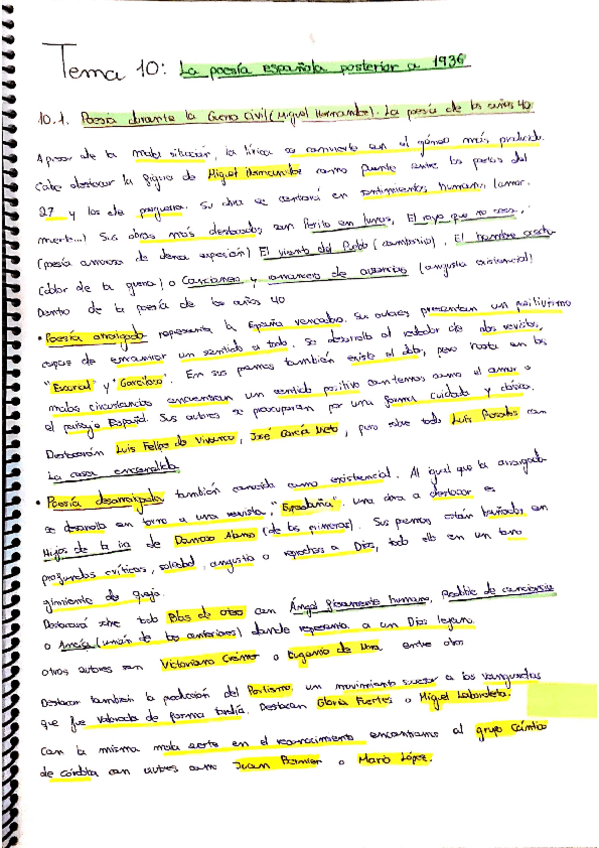 Tema 10: La poesía española posterior a 1936
10.1. Poesía durante la Guerra Civil (Miguel Hernández). La poesía de los años 40
A pesar de la mala situación, la lírica se convierte en el género más practicado.
Cabe destacar la figura de Miguel Hernández como puente entre los poetas del
27 y los de posguerra. Su obra se centrará en sentimientos humanos (amor,
muerte...) Sus obras más destacadas son Perito en lunas, El rayo que no cesa,
(poesía amorosa de densa expresión) El viento del Pueblo (combativa), El hombre acecha
(dolor de la guerra) o Cancionero y romancero de ausencias (angustia existencial)
Dentro de la poesía de los años 40
• Poesía arraigada representa la España vencedora. Sus autores presentan un positivismo
capaz de encontrar un sentido a todo. Se desarrolla al rededor de dos revistas,
"Escorial" y "Garcilaso". En sus poemas también existe el dolor, pero hasta en las
malas circunstancias encuentran un sentido positivo con temas como el amor o
el paisaje Español. Sus autores se preocuparán por una forma cuidada y clásica.
Destacarán Luis Felipe de Vivanco, José García Nieto, pero sobre todo Luis Rosales con
La casa encendida
• Poesía desarraigada también conocida como existencial. Al igual que la arraigada
se desarrolla en torno a una revista, "Espadaña". Una obra a destacar es
Hijos de la ira de Dámaso Alonso (de los primeros). Sus poemas están bañados en
profundas críticas, soledad, angustia o reproches a Dios, todo ello en un tono
de queja.
Destacará sobre todo Blas de Otero con Ángel fieramente humano, Redoble de conciencia
o Ancia (unión de los anteriores) donde representa a un Dios lejano
otros autores son Victoriano Crémer o Eugenio de Nora entre otros
Destacar también la producción del Postismo, un movimiento sucesor a las vanguardias
que fue valorada de forma tardía. Destacan Gloria Fuertes o Miguel Labordeta.
Con la misma mala suerte en el reconocimiento encontramos al grupo Cántico
de córdoba con autores como Juan Bernier o Mario López.